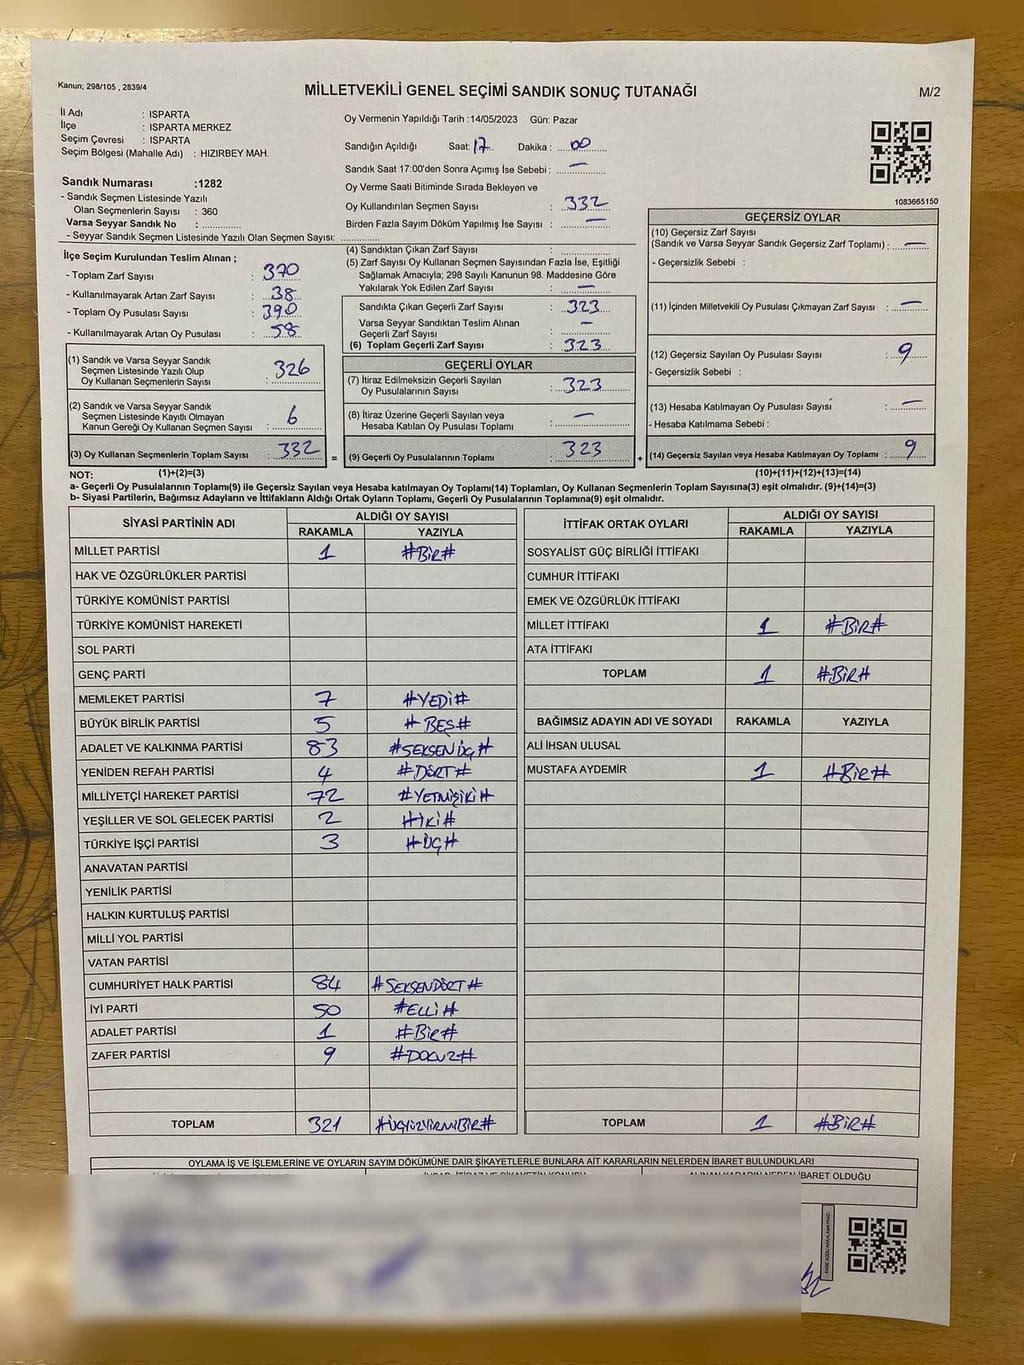 Kanun; 298/105 , 2839/4
MİLLETVEKİLİ GENEL SEÇİMİ SANDIK SONUÇ TUTANAĞI
M/2
İl Adı : ISPARTA
İlçe : ISPARTA MERKEZ
Seçim Çevresi : ISPARTA
Seçim Bölgesi (Mahalle Adı) : HIZIRBEY MAH.
Sandık Numarası :1282
- Sandık Seçmen Listesinde Yazılı
Olan Seçmenlerin Sayısı : 360
Varsa Seyyar Sandık No :
- Seyyar Sandık Seçmen Listesinde Yazılı Olan Seçmen Sayısı:
Oy Vermenin Yapıldığı Tarih :14/05/2023 Gün: Pazar
Sandığın Açıldığı Saat: 17 Dakika : 00
Sandık Saat 17:00'den Sonra Açımış İse Sebebi : —
Oy Verme Saati Bitiminde Sırada Bekleyen ve
Oy Kullandırılan Seçmen Sayısı : 332
Birden Fazla Sayım Döküm Yapılmış İse Sayısı : —
1083665150
İlçe Seçim Kurulundan Teslim Alınan ;
- Toplam Zarf Sayısı : 370
- Kullanılmayarak Artan Zarf Sayısı : 38
- Toplam Oy Pusulası Sayısı : 390
- Kullanılmayarak Artan Oy Pusulası : 58
(1) Sandık ve Varsa Seyyar Sandık
Seçmen Listesinde Yazılı Olup
Oy Kullanan Seçmenlerin Sayısı : 326
(2) Sandık ve Varsa Seyyar Sandık
Seçmen Listesinde Kayıtlı Olmayan
Kanun Gereği Oy Kullanan Seçmen Sayısı : 6
(3) Oy Kullanan Seçmenlerin Toplam Sayısı : 332
(4) Sandıktan Çıkan Zarf Sayısı :
(5) Zarf Sayısı Oy Kullanan Seçmen Sayısından Fazla İse, Eşitliği
Sağlamak Amacıyla; 298 Sayılı Kanunun 98. Maddesine Göre
Yakılarak Yok Edilen Zarf Sayısı : —
Sandıkta Çıkan Geçerli Zarf Sayısı : 323
Varsa Seyyar Sandıktan Teslim Alınan
Geçerli Zarf Sayısı : —
(6) Toplam Geçerli Zarf Sayısı : 323
GEÇERLİ OYLAR
(7) İtiraz Edilmeksizin Geçerli Sayılan
Oy Pusulalarının Sayısı : 323
(8) İtiraz Üzerine Geçerli Sayılan veya
Hesaba Katılan Oy Pusulası Toplamı : —
= (9) Geçerli Oy Pusulalarının Toplamı : 323 +
GEÇERSİZ OYLAR
(10) Geçersiz Zarf Sayısı
(Sandık ve Varsa Seyyar Sandık Geçersiz Zarf Toplamı) : —
- Geçersizlik Sebebi :
(11) İçinden Milletvekili Oy Pusulası Çıkmayan Zarf Sayısı : —
(12) Geçersiz Sayılan Oy Pusulası Sayısı : 9
- Geçersizlik Sebebi :
(13) Hesaba Katılmayan Oy Pusulası Sayısı : —
- Hesaba Katılmama Sebebi :
(14) Geçersiz Sayılan veya Hesaba Katılmayan Oy Toplamı : 9
NOT: (1)+(2)=(3) (10)+(11)+(12)+(13)=(14)
a- Geçerli Oy Pusulalarının Toplamı(9) ile Geçersiz Sayılan veya Hesaba katılmayan Oy Toplamı(14) Toplamları, Oy Kullanan Seçmenlerin Toplam Sayısına(3) eşit olmalıdır. (9)+(14)=(3)
b- Siyasi Partilerin, Bağımsız Adayların ve İttifakların Aldığı Ortak Oyların Toplamı, Geçerli Oy Pusulalarının Toplamına(9) eşit olmalıdır.
SİYASİ PARTİNİN ADI ALDIĞI OY SAYISI
RAKAMLA YAZIYLA
MİLLET PARTİSİ 1 #BİR#
HAK VE ÖZGÜRLÜKLER PARTİSİ
TÜRKİYE KOMÜNİST PARTİSİ
TÜRKİYE KOMÜNİST HAREKETİ
SOL PARTİ
GENÇ PARTİ
MEMLEKET PARTİSİ 7 #YEDİ#
BÜYÜK BİRLİK PARTİSİ 5 #BEŞ#
ADALET VE KALKINMA PARTİSİ 83 #SEKSENÜÇ#
YENİDEN REFAH PARTİSİ 4 #DÖRT#
MİLLİYETÇİ HAREKET PARTİSİ 72 #YETMİŞİKİ#
YEŞİLLER VE SOL GELECEK PARTİSİ 2 #İKİ#
TÜRKİYE İŞÇİ PARTİSİ 3 #ÜÇ#
ANAVATAN PARTİSİ
YENİLİK PARTİSİ
HALKIN KURTULUŞ PARTİSİ
MİLLİ YOL PARTİSİ
VATAN PARTİSİ
CUMHURİYET HALK PARTİSİ 84 #SEKSENDÖRT#
İYİ PARTİ 50 #ELLİ#
ADALET PARTİSİ 1 #BİR#
ZAFER PARTİSİ 9 #DOKUZ#
TOPLAM 321 #ÜÇYÜZYİRMİBİR#
İTTİFAK ORTAK OYLARI ALDIĞI OY SAYISI
RAKAMLA YAZIYLA
SOSYALİST GÜÇ BİRLİĞİ İTTİFAKI
CUMHUR İTTİFAKI
EMEK VE ÖZGÜRLÜK İTTİFAKI
MİLLET İTTİFAKI 1 #BİR#
ATA İTTİFAKI
TOPLAM 1 #BİR#
BAĞIMSIZ ADAYIN ADI VE SOYADI RAKAMLA YAZIYLA
ALİ İHSAN ULUSAL
MUSTAFA AYDEMİR 1 #BİR#
TOPLAM 1 #BİR#
OYLAMA İŞ VE İŞLEMLERİNE VE OYLARIN SAYIM DÖKÜMÜNE DAİR ŞİKAYETLERLE BUNLARA AİT KARARLARIN NELERDEN İBARET BULUNDUKLARI
ALINAN KARARIN NEDEN İBARET OLDUĞU